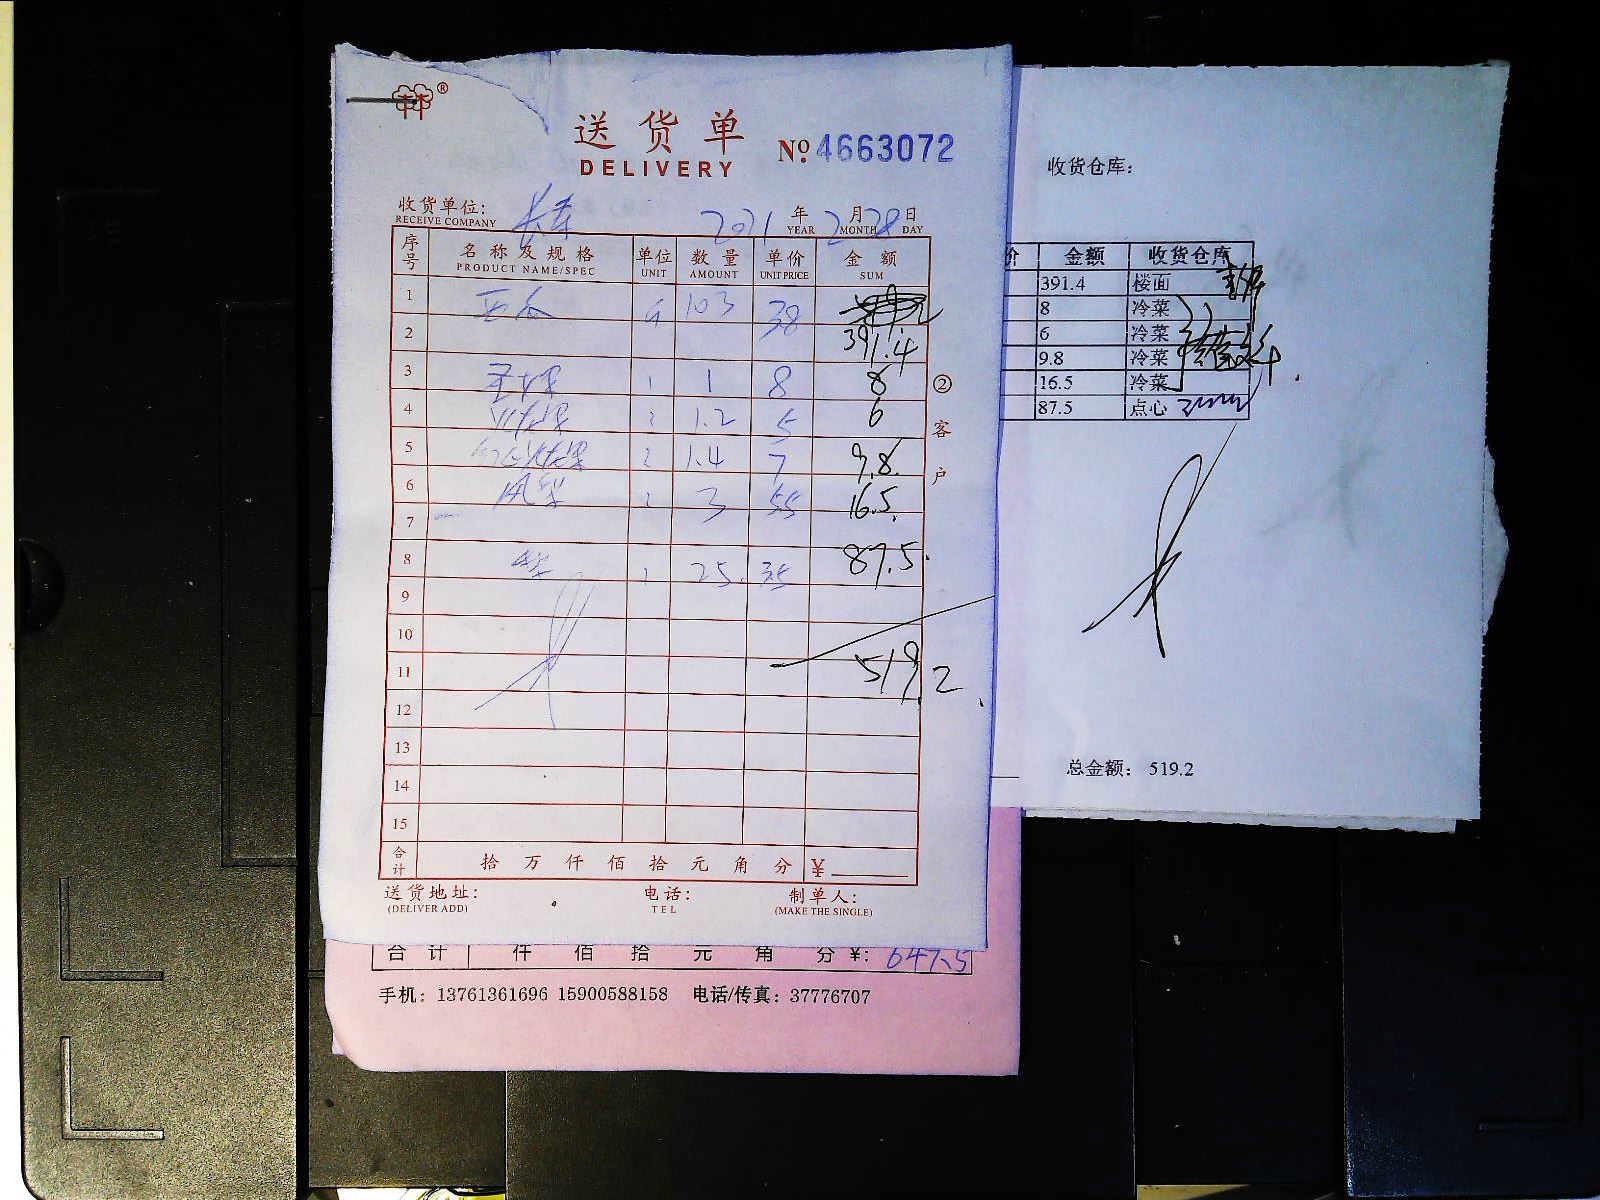 送货单
DELIVERY
№ 4663072
收货单位:
RECEIVE COMPANY
2021 年 2 月 28 日
YEAR MONTH DAY
序号 名称及规格 单位 数量 单价 金额
PRODUCT NAME/SPEC UNIT AMOUNT UNIT PRICE SUM
1 103 38
2 391.4
3 1 8 8
4 1.2 5 6
5 1.4 7 9.8
6 3 55 16.5
7
8 25 35 87.5
9
10
11 519.2
12
13
14
15
合计 拾 万 仟 佰 拾 元 角 分 ¥
送货地址: 电话: 制单人:
(DELIVER ADD) TEL (MAKE THE SINGLE)
② 客户
收货仓库:
价 金额 收货仓库
391.4 楼面
8 冷菜
6 冷菜
9.8 冷菜
16.5 冷菜
87.5 点心
总金额: 519.2
合计 仟 佰 拾 元 角 分 ¥: 647.5
手机: 13761361696 15900588158 电话/传真: 37776707